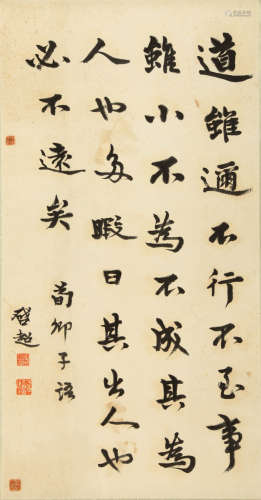 道雖邇不行不至事
雖小不為不成其為
人也多暇日其出人也
必不遠矣
荀卿子語
啓超